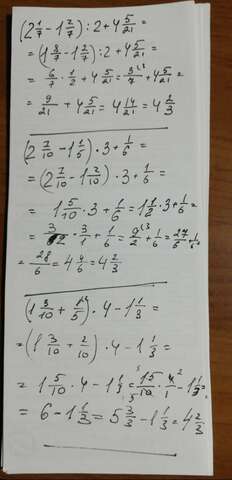 (2 1/7 − 1 2/7) : 2 + 4 5/21 =
= (1 8/7 − 1 2/7) : 2 + 4 5/21 =
= 6/7 · 1/2 + 4 5/21 = 3/7 + 4 5/21 =
= 9/21 + 4 5/21 = 4 14/21 = 4 2/3
(2 7/10 − 1 1/5) · 3 + 1/6 =
= (2 7/10 − 1 2/10) · 3 + 1/6 =
= 1 5/10 · 3 + 1/6 = 1 1/2 · 3 + 1/6 =
= 3/2 · 3/1 + 1/6 = 9/2 + 1/6 = 27/6 + 1/6
= 28/6 = 4 4/6 = 4 2/3
(1 3/10 + 1/5) · 4 − 1 1/3 =
= (1 3/10 + 2/10) · 4 − 1 1/3 =
= 1 5/10 · 4 − 1 1/3 = 15/10 · 4/1 − 1 1/3 =
= 6 − 1 1/3 = 5 3/3 − 1 1/3 = 4 2/3